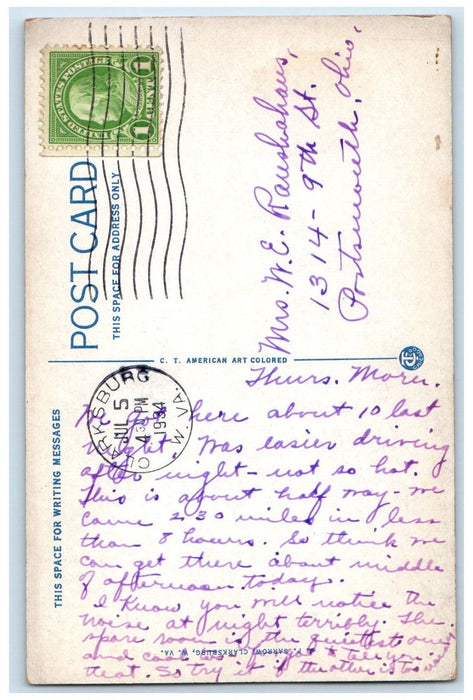 UNITED STATES POSTAGE
1 1
POST CARD
THIS SPACE FOR ADDRESS ONLY
Mrs. W. E. Raushahaus,
1314 - 9th St.
Portsmouth, Ohio.
C. T. AMERICAN ART COLORED
CLARKSBURG
JUL 5
4 30 PM
1934
W. VA.
THIS SPACE FOR WRITING MESSAGES
Thurs. Morn.
We got here about 10 last
night. Was easier driving
after night - not so hot.
This is about half way - we
came 230 miles in less
than 8 hours. So think we
can get there about middle
of afternoon today.
I know you will notice the
noise at night terribly. The
spare room is the quietest one
and cool
to tell you
that. So try it if the other is too
CLARKSBURG, W. VA.